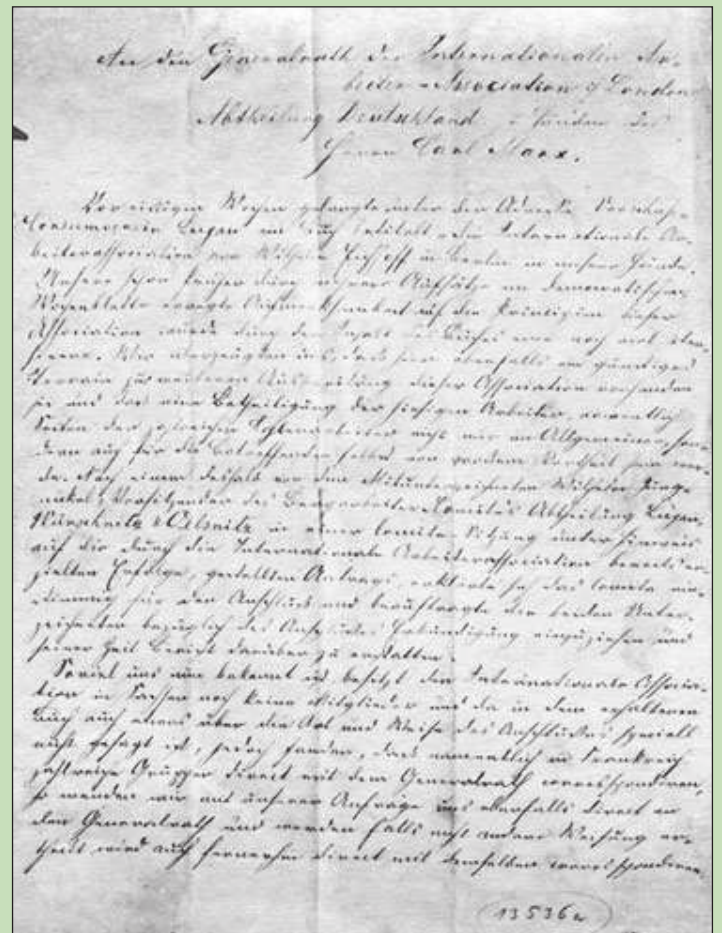 An den Generalrath der Internationalen Ar-
beiter-Association z/ London
Abtheilung Deutschland, z Händen des
Herrn Carl Marx.
Vor einigen Wochen gelangte unter der Adresse
Consumverein Lugau ein Buch betitelt „die Internationale Ar-
beiterassociation von Wilhelm Eichhoff in Berlin in unsere Hände.
Unsere schon früher durch mehrere Aufsätze im demokratischen
Wochenblatte erregte Aufmerksamkeit auf die Prinzipien dieser
Association wurde durch den Inhalt des Buches nur noch
Wir überzeugten uns, dass hier ebenfalls ein günstiges
Terrain zur weiteren Ausbreitung dieser Association vorhanden
sei und dass eine Betheiligung der hiesigen Arbeiter, namentlich
Seiten der zahlreichen nicht nur im Allgemeinen, son-
dern auch für die betreffenden selbst von Vortheil sein wer-
de. Nach einem deshalb von dem Mitunterzeichneten Wilhelm Junge
nickel, Vorsitzender des Bergarbeiter-Comité's Abtheilung Lugau,
Würschnitz & Oelsnitz in einer Comité-Sitzung unter Hinweis
auf die durch die Internationale Arbeiterassociation bereits er-
zielten Erfolge, gestellten Antrage, erklärte sich das Comité ein-
stimmig für den Anschluss und beauftragte die beiden Unter-
zeichneten bezüglich des Anschlusses Erkundigung einzuziehen und
seiner Zeit Bericht darüber zu erstatten.
Soviel uns nun bekannt ist besitzt die Internationale Associa-
tion in Sachsen noch keine Mitglieder und da in dem erhaltenen
Buch auch etwas über die Art und Weise des Anschlusses speciell
nicht gesagt ist, jedoch fanden, dass namentlich in Frankreich
zahlreiche Gruppen direct mit dem Generalrath correspondiren,
so wenden wir mit unserer Anfrage uns ebenfalls direct an
den Generalrath und werden falls nicht andere Weisung er-
theilt wird auch fernerhin direct mit demselben correspondiren.
13536a